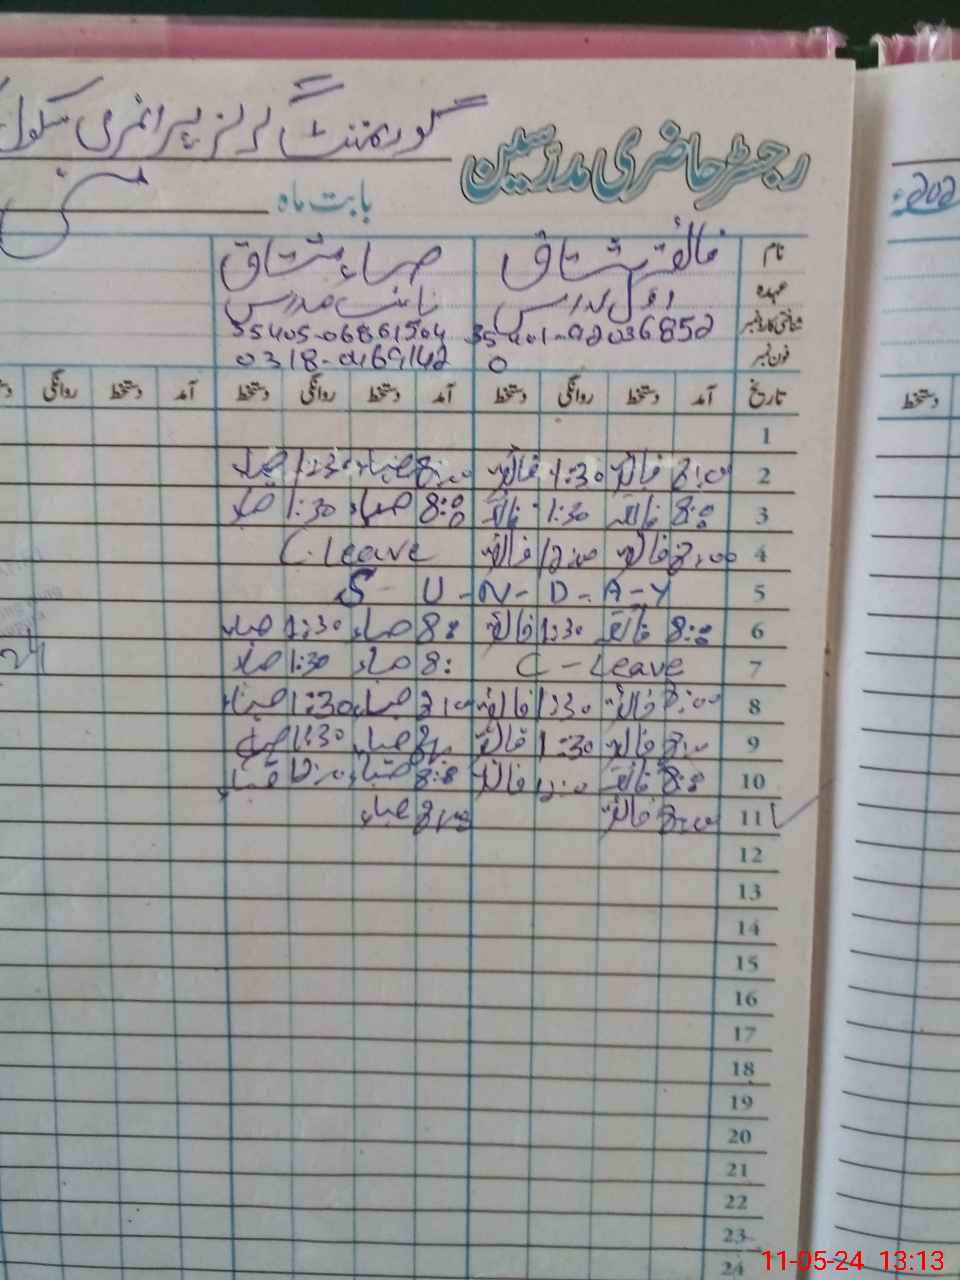 گورنمنٹ گرلز پرائمری سکول
رجسٹر حاضری مدرسین
بابت ماہ مئی
نام فائقہ مشتاق صباء مشتاق
عہدہ اول مدرس نائب مدرس
شناختی کارڈ نمبر 35401-92036852 35405-06861504
فون نمبر 0 0318-0469142
تاریخ آمد دستخط روانگی دستخط آمد دستخط روانگی دستخط آمد دستخط روانگی دستخط
1
2 8:00 فائقہ 1:30 فائقہ 8:00 صباء 1:30 صباء
3 8:00 فائقہ 1:30 فائقہ 8:00 صباء 1:30 صباء
4 8:00 فائقہ 12:00 فائقہ C.Leave
5 S-U-N-D-A-Y
6 8:00 فائقہ 1:30 فائقہ 8:8 صباء 1:30 صباء
7 C-Leave 8: صباء 1:30 صباء
8 8:00 فائقہ 1:30 فائقہ 8:00 صباء 1:30 صباء
9 8:00 فائقہ 1:30 فائقہ 8:00 صباء 1:30 صباء
10 8:8 فائقہ 12:00 فائقہ 8:8 صباء 12:00 صباء
11 8:00 فائقہ 8:00 صباء
12
13
14
15
16
17
18
19
20
21
22
23
24
دستخط
11-05-24 13:13